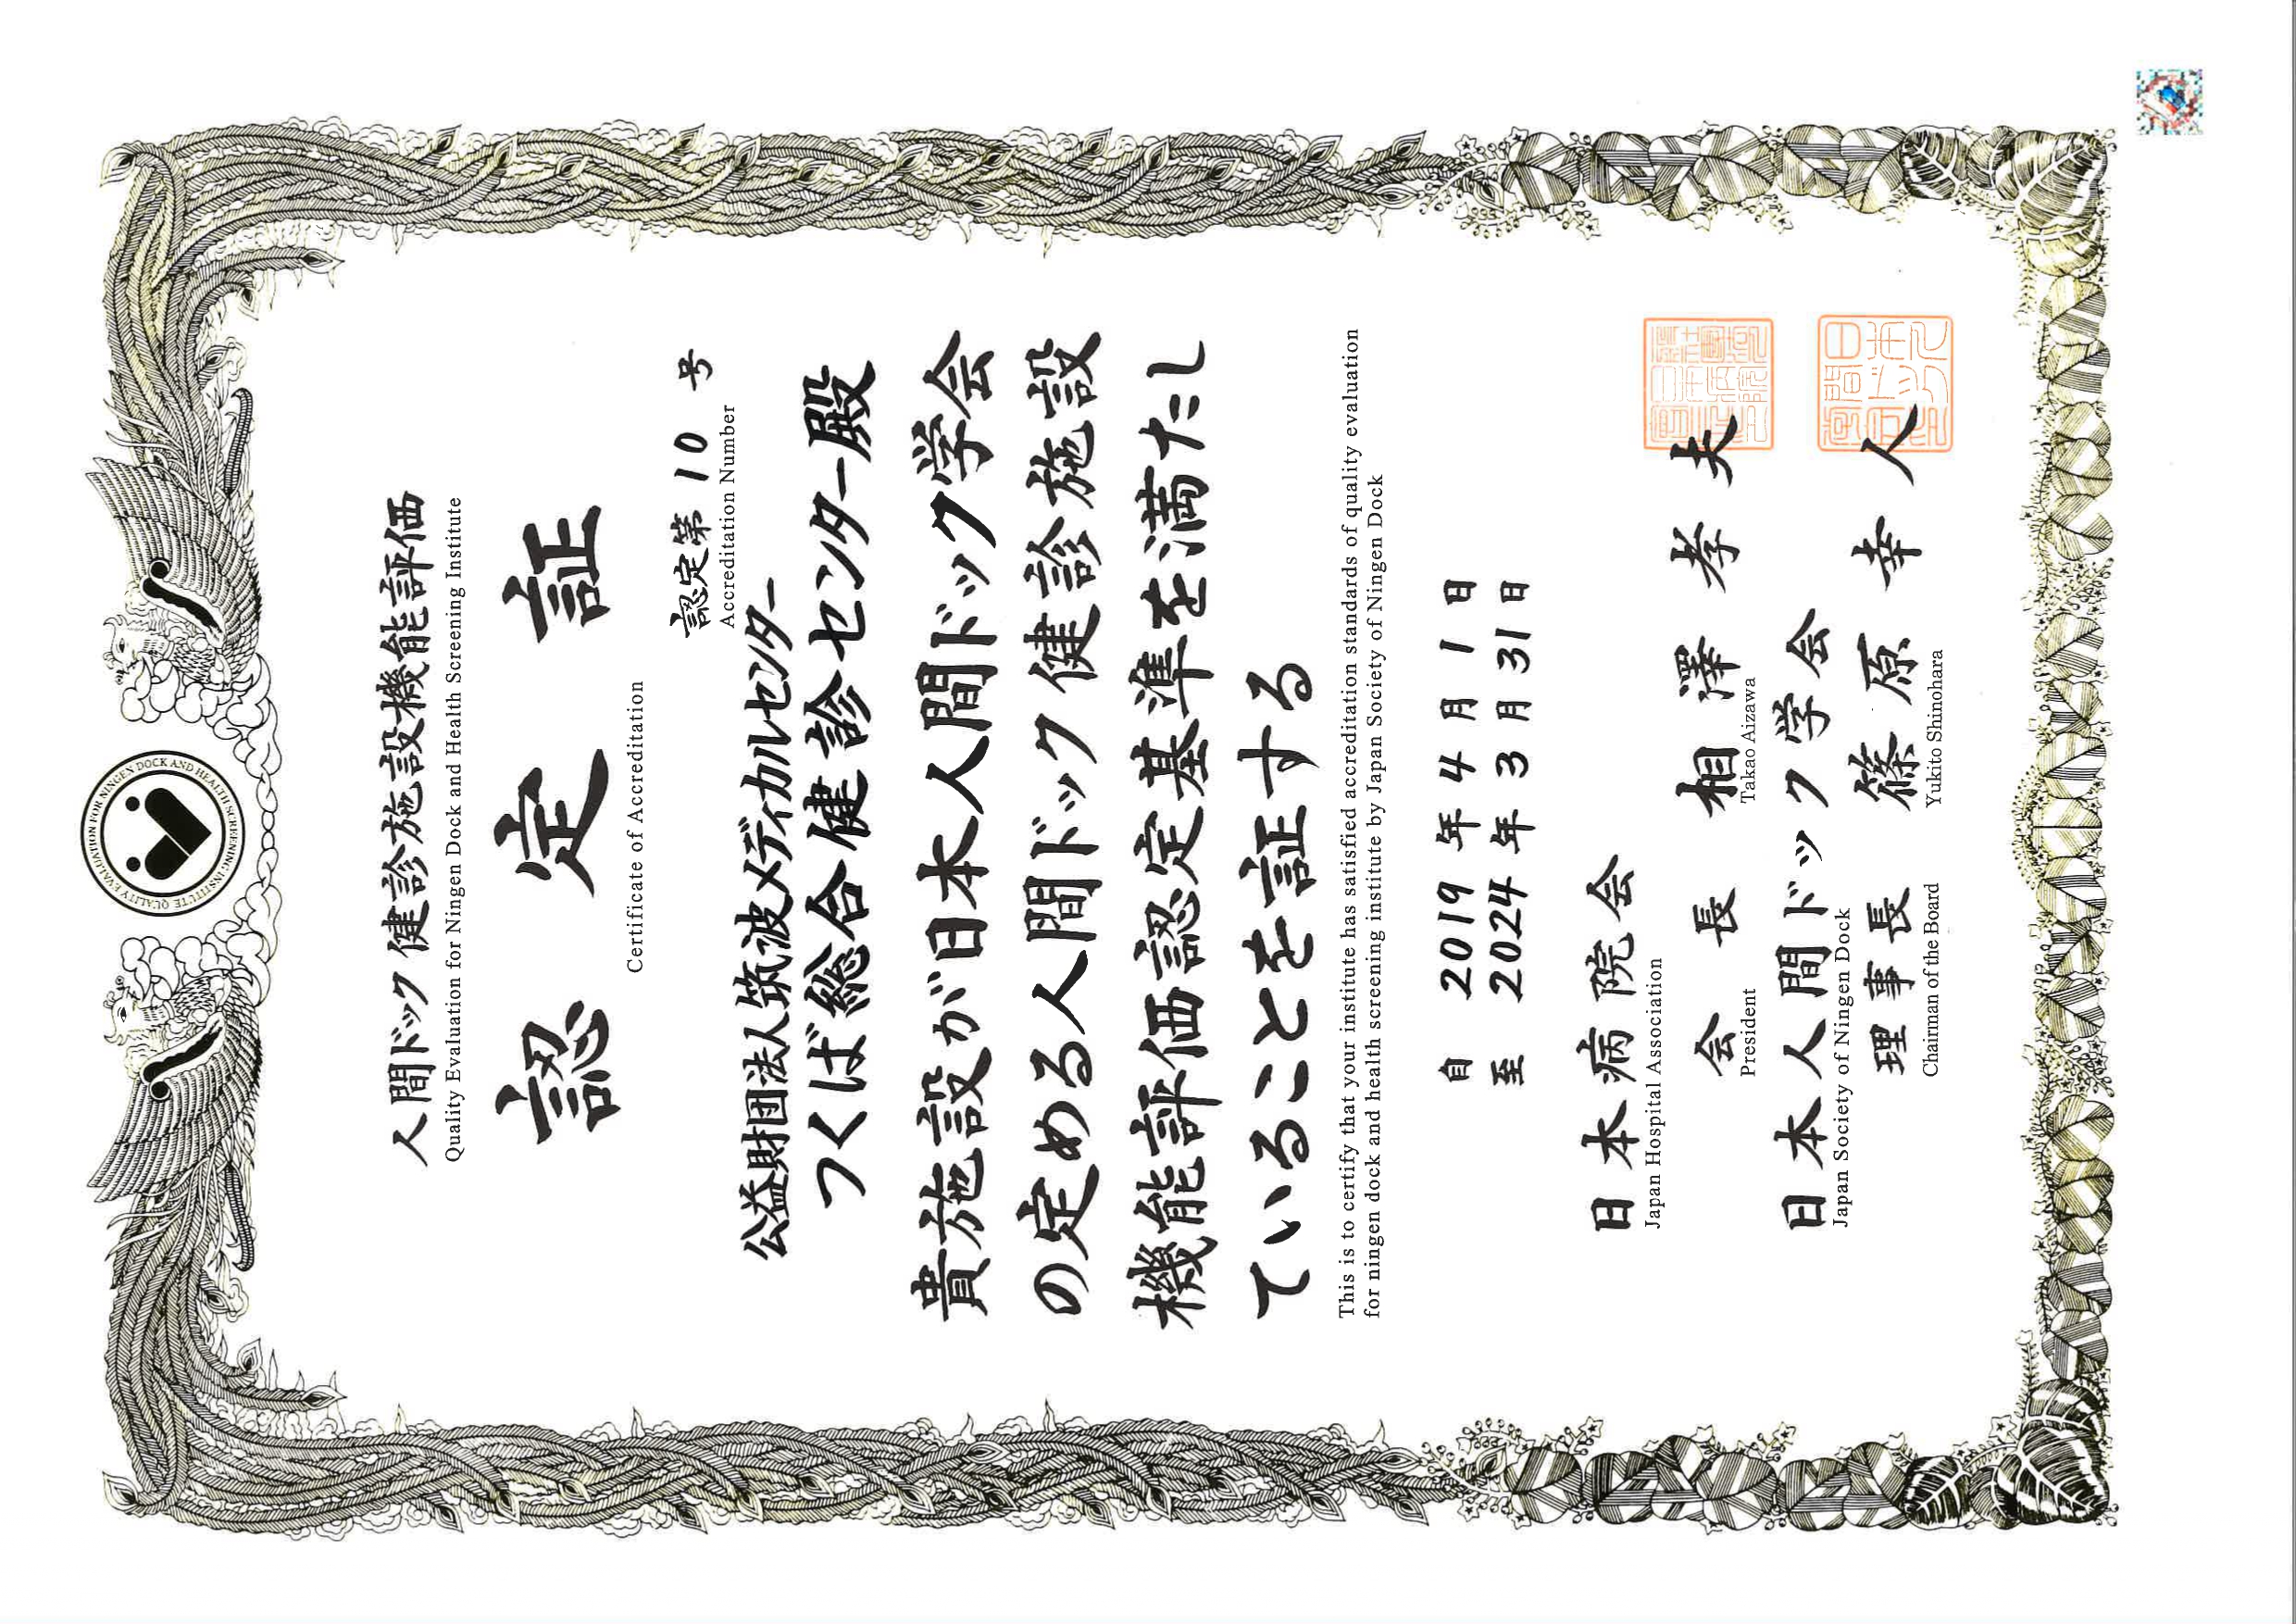 QUALITY EVALUATION FOR NINGEN DOCK AND HEALTH SCREENING INSTITUTE
人間ドック健診施設機能評価
Quality Evaluation for Ningen Dock and Health Screening Institute
認定証
Certificate of Accreditation
認定第 10 号
Accreditation Number
公益財団法人筑波メディカルセンター
つくば総合健診センター殿
貴施設が日本人間ドック学会
の定める人間ドック健診施設
機能評価認定基準を満たし
ていることを証する
This is to certify that your institute has satisfied accreditation standards of quality evaluation
for ningen dock and health screening institute by Japan Society of Ningen Dock
自 2019 年 4 月 1 日
至 2024 年 3 月 31 日
日本病院会
Japan Hospital Association
会長 相澤孝夫
President Takao Aizawa
日本人間ドック学会
Japan Society of Ningen Dock
理事長 篠原幸人
Chairman of the Board Yukito Shinohara